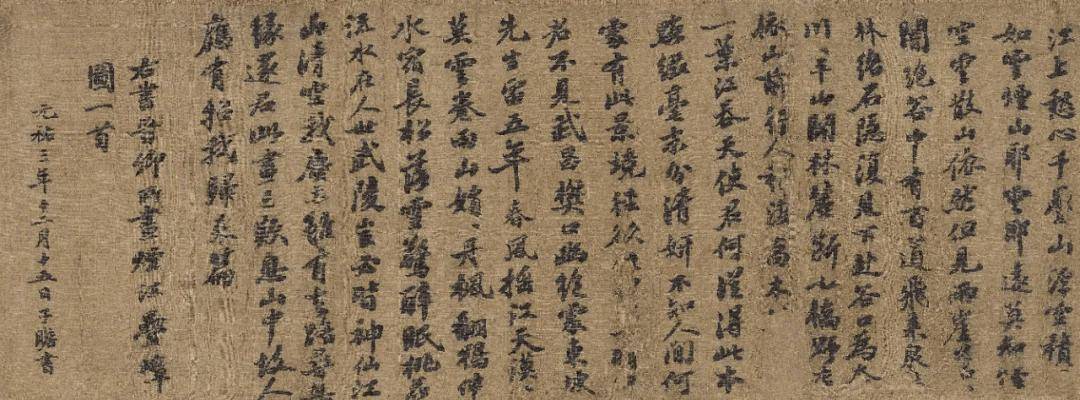 江上愁心千疊山浮空積
如雲煙山耶雲耶遠莫知煙
空雲散山依然但見兩崖蒼〻
闇絶谷中有百道飛來泉
林絡石隱復見下赴谷口為奔
川〻平山開林麓斷小橋野店
依山前行人稍渡喬木
一葉江吞天使君何從得此本
點綴毫末分清妍不知人間何
處有此景境徑欲
君不見武昌樊口幽絶處東坡
先生留五年春風搖江天漠〻
莫雲卷雨山娟〻丹楓翻鴉伴
水宿長松落雪驚醉眠桃花
流水在人世武陵豈必皆神仙江
山清空我塵土雖有去路尋無
緣還君此畫三歎息山中故人
應有招我歸來篇
右書晉卿所畫煙江疊嶂
圖一首
元祐三年十二月十五日子瞻書